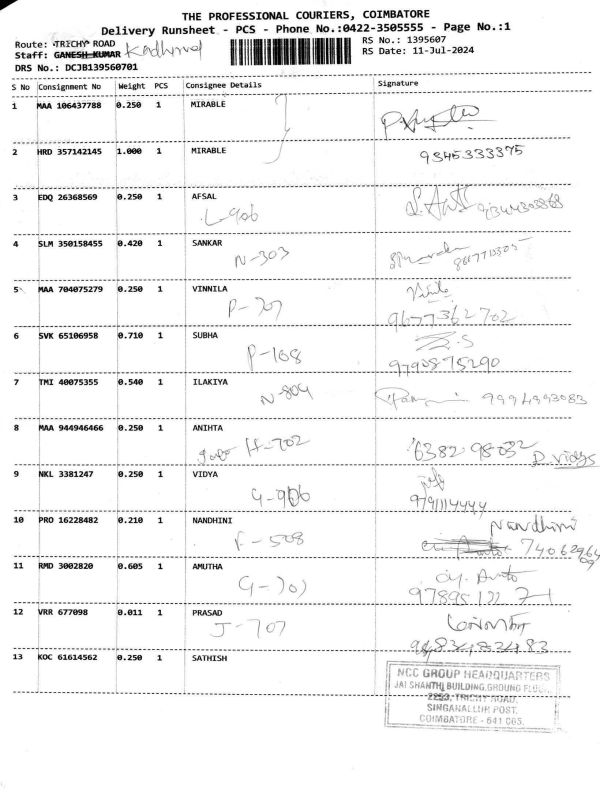 THE PROFESSIONAL COURIERS, COIMBATORE
Delivery Runsheet - PCS - Phone No.:0422-3505555 - Page No.:1
Route: TRICHY ROAD
RS No.: 1395607
Staff: GANESH KUMAR
RS Date: 11-Jul-2024
DRS No.: DCJB139560701
S No Consignment No Weight PCS Consignee Details Signature
1 MAA 106437788 0.250 1 MIRABLE
2 HRD 357142145 1.000 1 MIRABLE 9345333375
3 EDQ 26368569 0.250 1 AFSAL
L-906
4 SLM 350158455 0.420 1 SANKAR
N-303
5 MAA 704075279 0.250 1 VINNILA
P-707 9677362702
6 SVK 65106958 0.710 1 SUBHA
P-168 9790875290
7 TMI 40075355 0.540 1 ILAKIYA
N-804 9994993083
8 MAA 944946466 0.250 1 ANIHTA
H-702
9 NKL 3381247 0.250 1 VIDYA
G-906 9791114444
10 PRO 16228482 0.210 1 NANDHINI Nandhini
F-508
11 RMD 3002820 0.605 1 AMUTHA
12 VRR 677098 0.011 1 PRASAD
J-707
13 KOC 61614562 0.250 1 SATHISH
NCC GROUP HEADQUARTERS
JAI SHANTHI BUILDING, GROUND FLOOR,
2253, TRICHY ROAD,
SINGANALLUR POST,
COIMBATORE - 641 005.